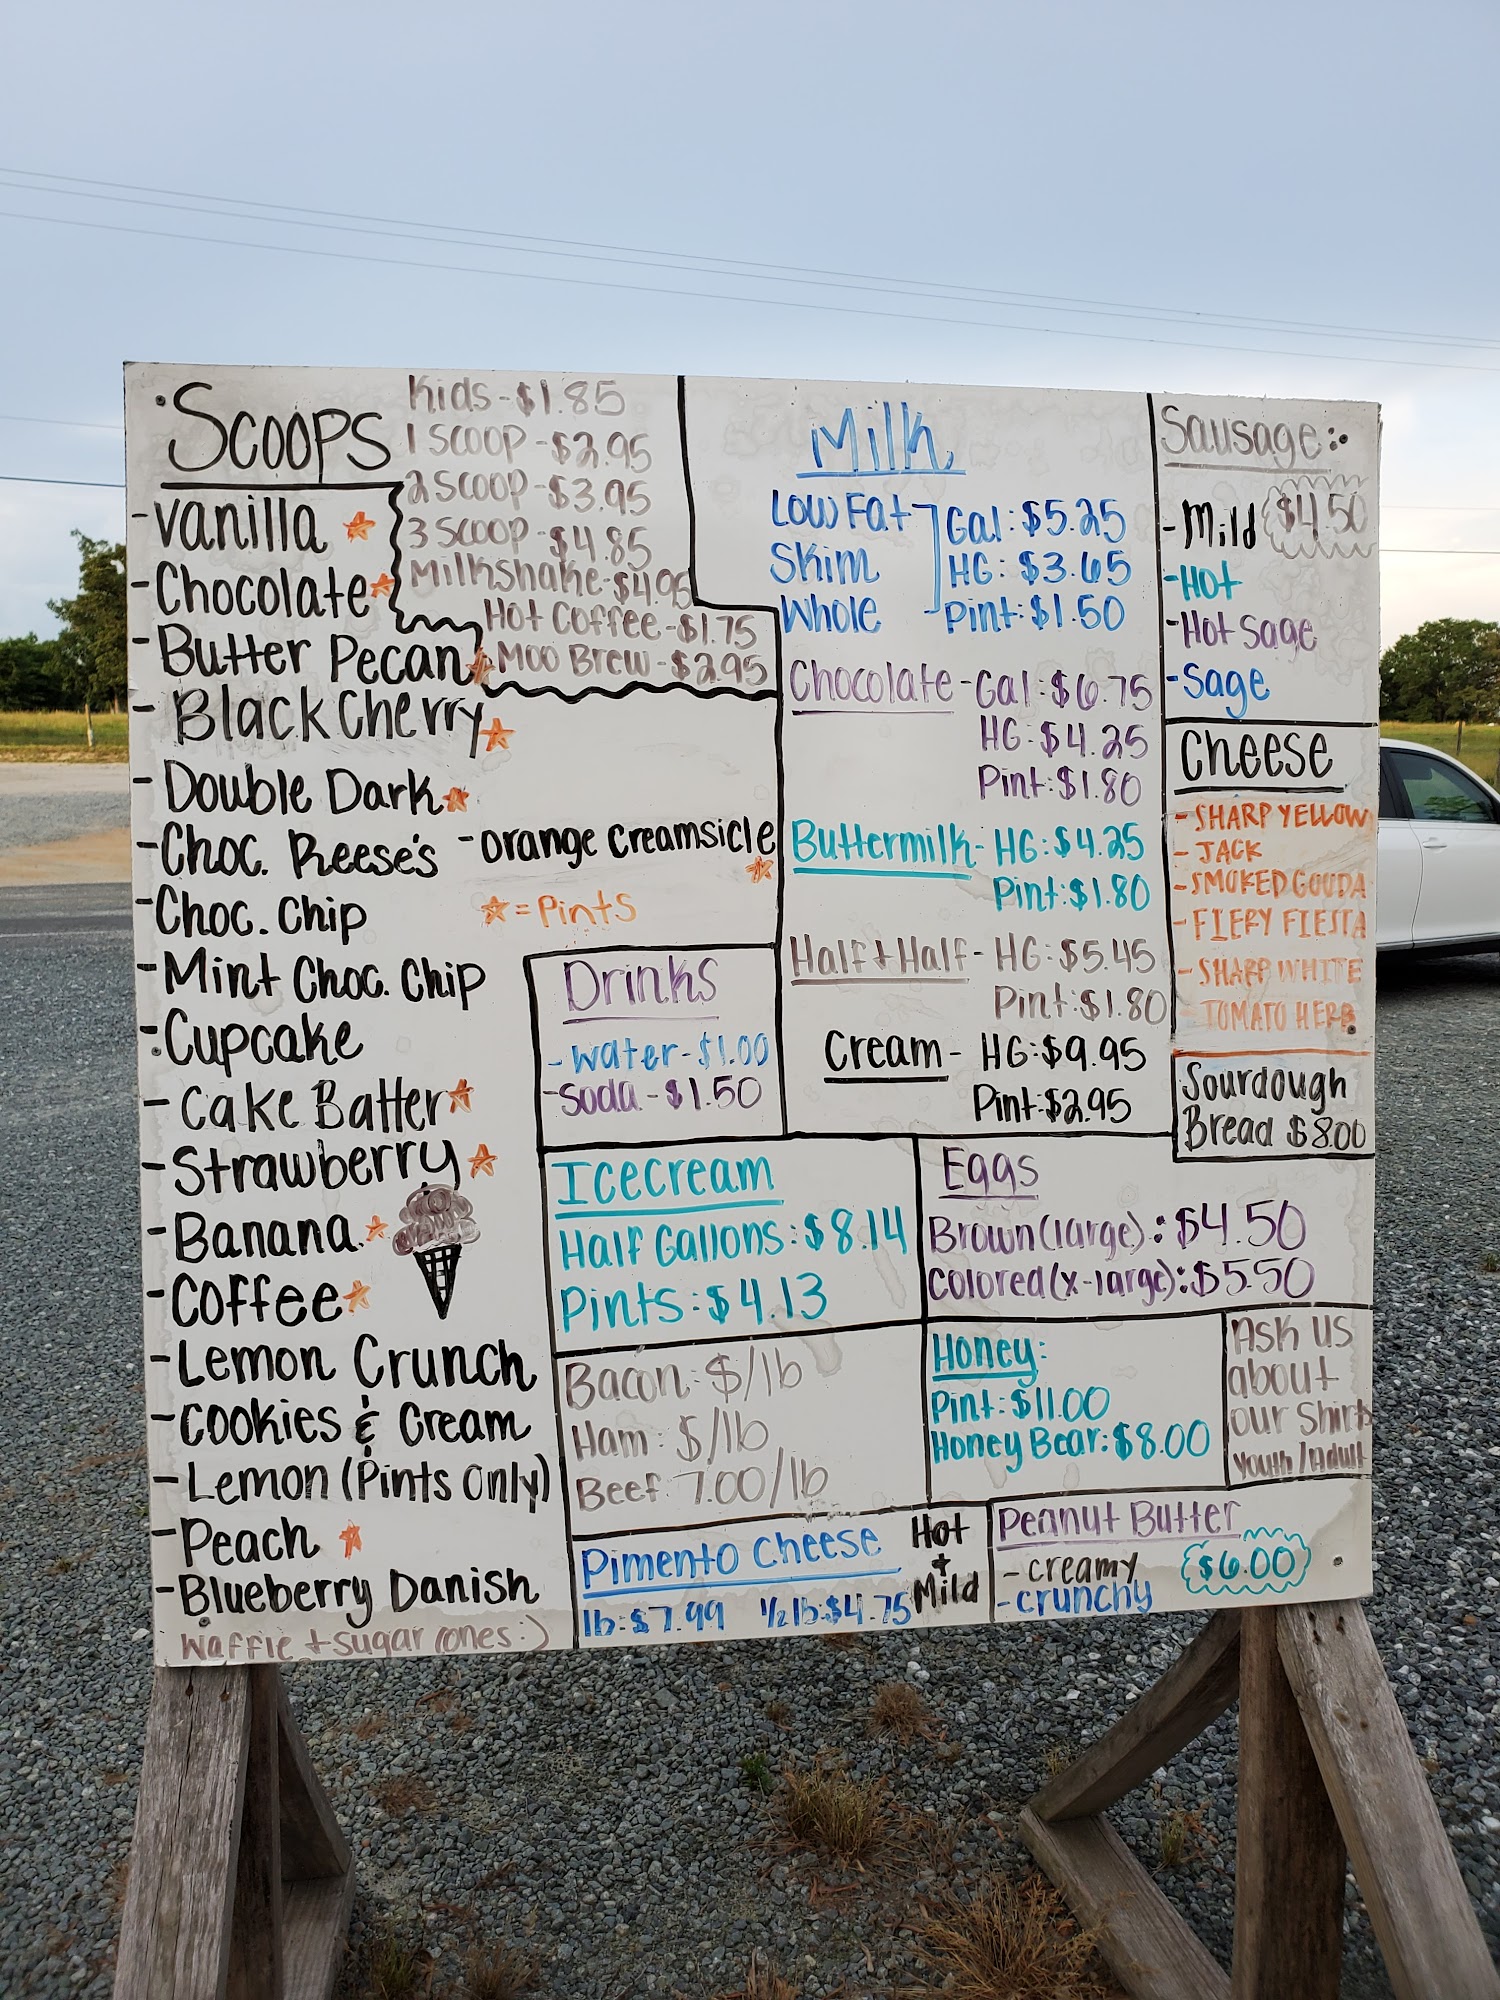 Scoops
Kids - $1.85
1 Scoop - $2.95
2 Scoop - $3.95
3 Scoop - $4.85
Milkshake - $4.95
Hot Coffee - $1.75
Moo Brew - $2.95
- Vanilla
- Chocolate
- Butter Pecan
- Black Cherry
- Double Dark
- Choc. Reese's
- Orange Creamsicle
- Choc. Chip
= Pints
- Mint Choc. Chip
- Cupcake
- Cake Batter
- Strawberry
- Banana
- Coffee
- Lemon Crunch
- Cookies & Cream
- Lemon (Pints Only)
- Peach
- Blueberry Danish
Waffle + Sugar Cones :)
Drinks
- Water - $1.00
- Soda - $1.50
Milk
Low Fat
Skim
Whole
Gal: $5.25
HG: $3.65
Pint: $1.50
Chocolate - Gal: $6.75
HG: $4.25
Pint: $1.80
Buttermilk - HG: $4.25
Pint: $1.80
Half + Half - HG: $5.45
Pint: $1.80
Cream - HG: $9.95
Pint: $2.95
Sausage:
- Mild $4.50
- Hot
- Hot Sage
- Sage
Cheese
- SHARP YELLOW
- JACK
- SMOKED GOUDA
- FIERY FIESTA
- SHARP WHITE
- TOMATO HERB
Sourdough
Bread $8.00
Icecream
Half Gallons: $8.14
Pints: $4.13
Eggs
Brown (large): $4.50
Colored (x-large): $5.50
Bacon: $/lb
Ham: $/lb
Beef: 7.00/lb
Honey:
Pint: $11.00
Honey Bear: $8.00
Ask us
about
our Shirts
Youth/Adult
Pimento Cheese
lb: $7.99 1/2 lb: $4.75
Hot
+
Mild
Peanut Butter
- creamy
- crunchy
$6.00